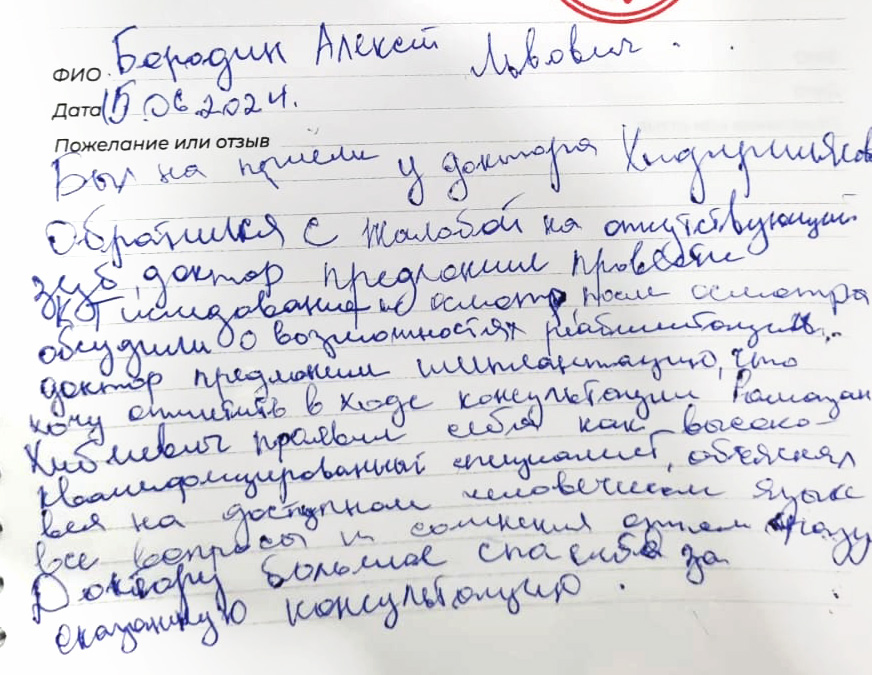 ФИО Бородин Алексей Львович.
Дата 15.06.2024.
Пожелание или отзыв
Был на приёме у доктора
Обратился с жалобой на отсутствующий
зуб, доктор предложил провести
КТ исследование и осмотр, после осмотра
обсудили о возможностях реабилитации,
доктор предложил имплантацию, что
хочу отметить в ходе консультации Рамазан
проявил себя как высоко-
квалифицированный специалист, объяснял
всё на доступном человеческом языке
все вопросы и сомнения сразу
Доктору большое спасибо за
оказанную консультацию.